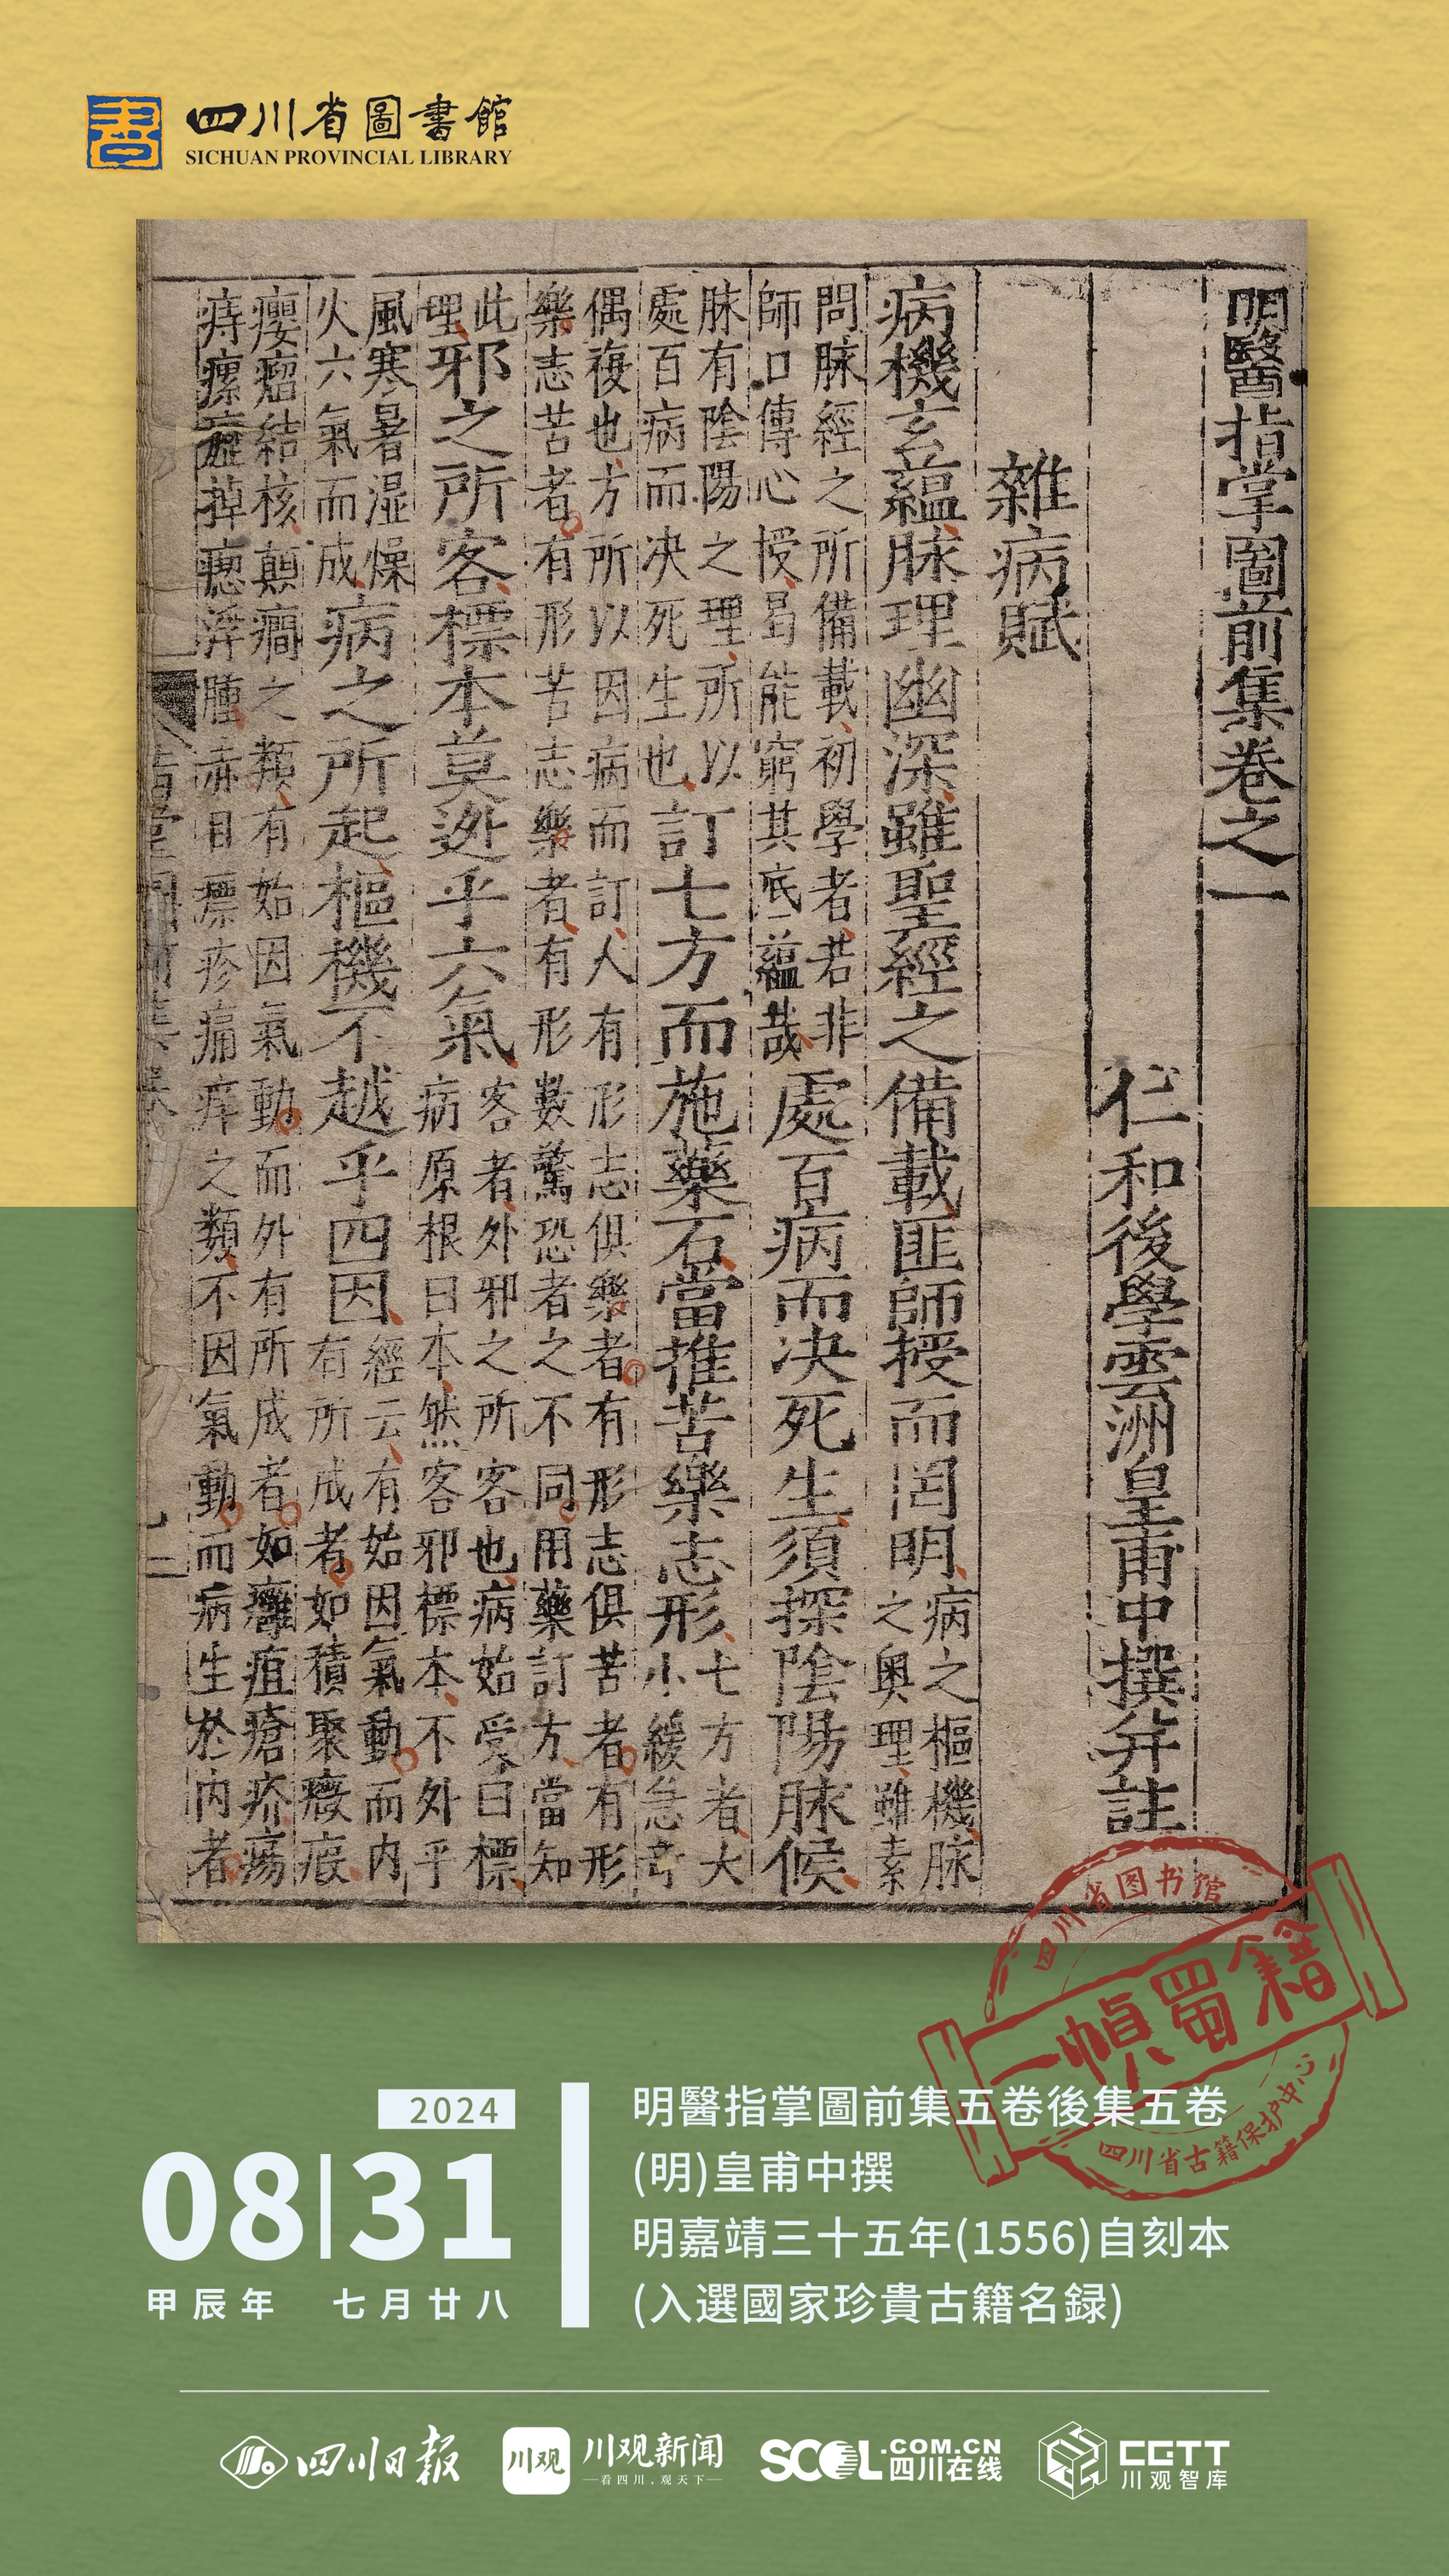 四川省圖書館
SICHUAN PROVINCIAL LIBRARY
明醫指掌圖前集卷之一
仁和後學雲洲皇甫中撰并註
雜病賦
病機玄蘊脉理幽深雖聖經之備載匪師授而罔明病之樞機脉
之奥理雖素
問脉經之所備載初學者若非
師口傳心授曷能窮其底蘊哉處百病而决死生須探陰陽脉候
脉有陰陽之理所以
處百病而决死生也訂七方而施藥石當推苦樂志形七方者大
小緩急竒
偶複也方所以因病而訂人有形志俱樂者有形志俱苦者有形
樂志苦者有形苦志樂者有形數驚恐者之不同用藥訂方當知
此
理邪之所客標本莫迯乎六氣客者外邪之所客也病始受曰標
病原根曰本然客邪標本不外乎
風寒暑湿燥
火六氣而成病之所起樞機不越乎四因經云有始因氣動而内
有所成者如積聚癥瘕
癭瘤結核顛癎之類有始因氣動而外有所成者如癰疽瘡疥瘍
痔瘰
掉瘛浮腫赤目瘭疹痛痒之類不因氣動而病生於内者
四川省图书馆
一幀蜀籍
四川省古籍保护中心
2024
08|31
甲辰年 七月廿八
明醫指掌圖前集五卷後集五卷
(明)皇甫中撰
明嘉靖三十五年(1556)自刻本
(入選國家珍貴古籍名録)
四川日报
川观
川观新闻
看四川，观天下
SCOL.COM.CN
四川在线
CGTT
川观智库